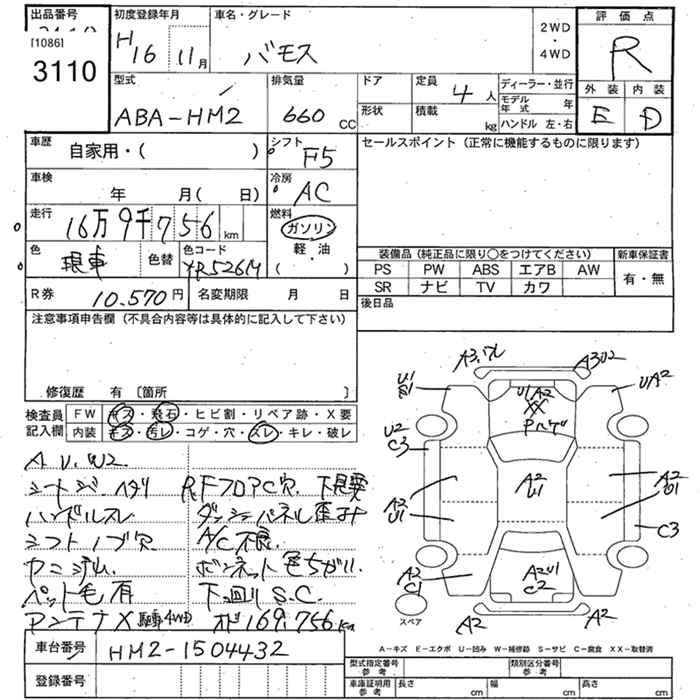 出品番号
[1086]
3110
初度登録年月
H16 11月
車名・グレード
バモス
2WD
・
4WD
評価点
R
外装 内装
E D
型式
ABA-HM2
排気量
660 CC
ドア
形状
定員
4人
積載
kg
ディーラー・並行
モデル年式 年
ハンドル 左・右
車歴
自家用・( )
シフト
F5
セールスポイント (正常に機能するものに限ります)
車検
年 月( 日)
冷房
AC
走行
16万9千756 km
燃料
ガソリン
軽・油
( )
色
色替
色コード
YR526M
装備品 (純正品に限り○をつけてください)
新車保証書
PS PW ABS エアB AW
有・無
SR ナビ TV カワ
R券 10.570円
名変期限 月 日
後日品
注意事項申告欄 (不具合内容等は具体的に記入して下さい)
修復歴 有 [箇所 ]
検査員記入欄
FW キズ・飛石・ヒビ割・リペア跡・X要
内装 キズ・汚レ・コゲ・穴・スレ・キレ・破レ
A.U.W2
シートシミ.ヘタリ RFフロアC穴.下見要
ハンドルスレ ダッシュパネル歪み
シフトノブ穴 A/C不良
ヤニシグム. ボンネット色ちがい.
ペット毛有 下回りS.C.
アンテナX 4WD 169,756Km
車台番号
HM2-1504432
登録番号
A3.ワレ
A3U2
U1
S1
UA2
U1A2
XX
Pハゲ
U2
C3
A2
U1
A2
U1
A2
U1
C3
A2
C1
A2U1
C2
A2
A2
スペア
A-キズ E-エクボ U-凹み W-補修跡 S-サビ C-腐食 XX-取替済
型式指定番号
参考
類別区分番号
参考
車庫証明用
参考
長さ cm
幅 cm
高さ cm